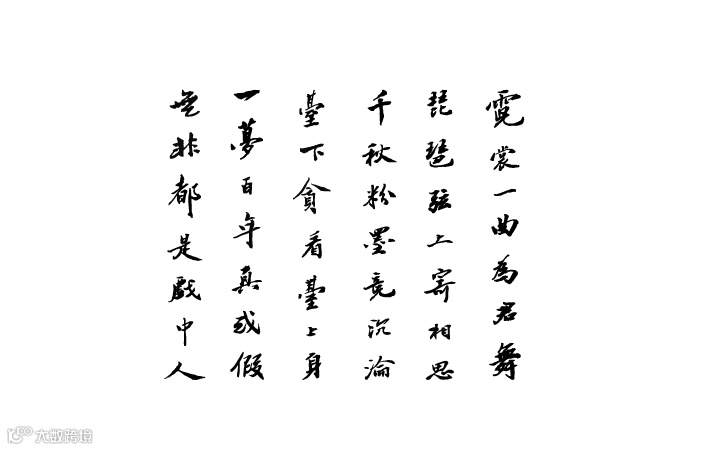 霓裳一曲為君舞
琵琶弦上寄相思
千秋粉墨竟沉淪
臺下貪看臺上身
一夢百年真或假
無非都是戲中人
大数跨境